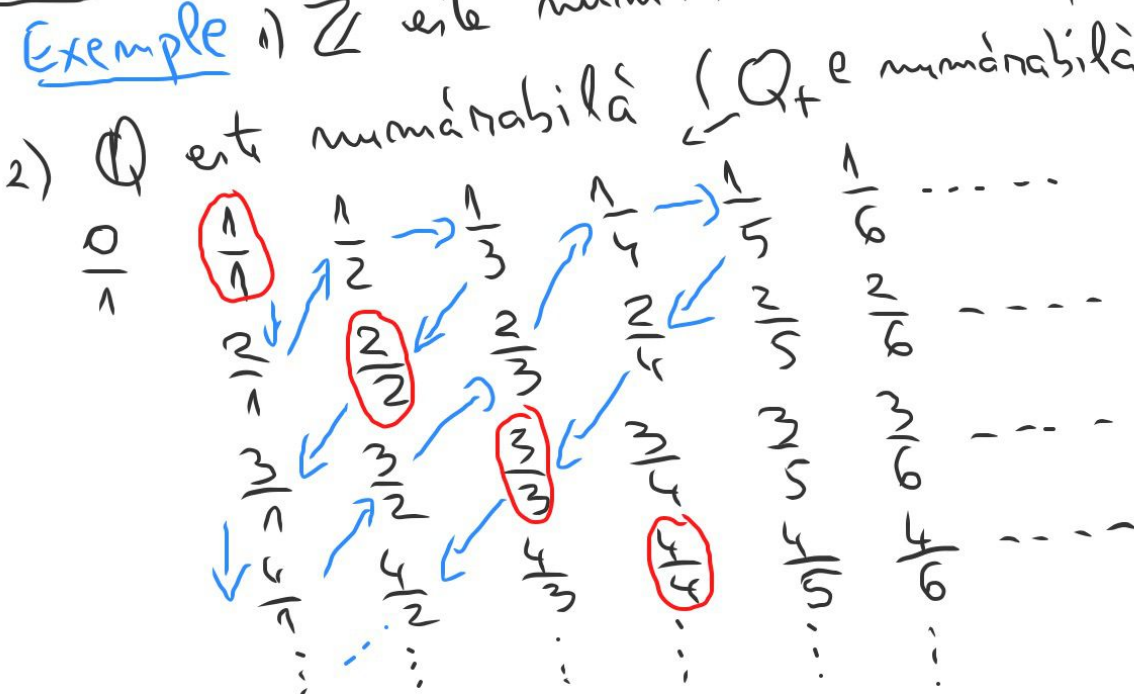 Exemple 1) ℤ este
2) ℚ este numărabilă (ℚ₊ e numărabilă
0/1 1/1 1/2 1/3 1/4 1/5 1/6 ......
2/1 2/2 2/3 2/4 2/5 2/6 ----
3/1 3/2 3/3 3/4 3/5 3/6 ----
4/1 4/2 4/3 4/4 4/5 4/6 ----